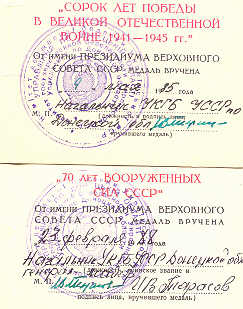 "СОРОК ЛЕТ ПОБЕДЫ
В ВЕЛИКОЙ ОТЕЧЕСТВЕННОЙ
ВОЙНЕ 1941—1945 гг."
От имени ПРЕЗИДИУМА ВЕРХОВНОГО
СОВЕТА СССР МЕДАЛЬ ВРУЧЕНА
мая 85 года
Начальник УКГБ УССР по
Донецкой обл.
М. П. (должность и подпись лица,
вручившего медаль)
"70 ЛЕТ ВООРУЖЕННЫХ
СИЛ СССР"
От имени ПРЕЗИДИУМА ВЕРХОВНОГО
СОВЕТА СССР МЕДАЛЬ ВРУЧЕНА
23 февраля 88 года
Начальник УКГБ УССР Донецкой обл
генерал-
(должность, воинское звание и
М. П. Тарасов
подпись лица, вручившего медаль)